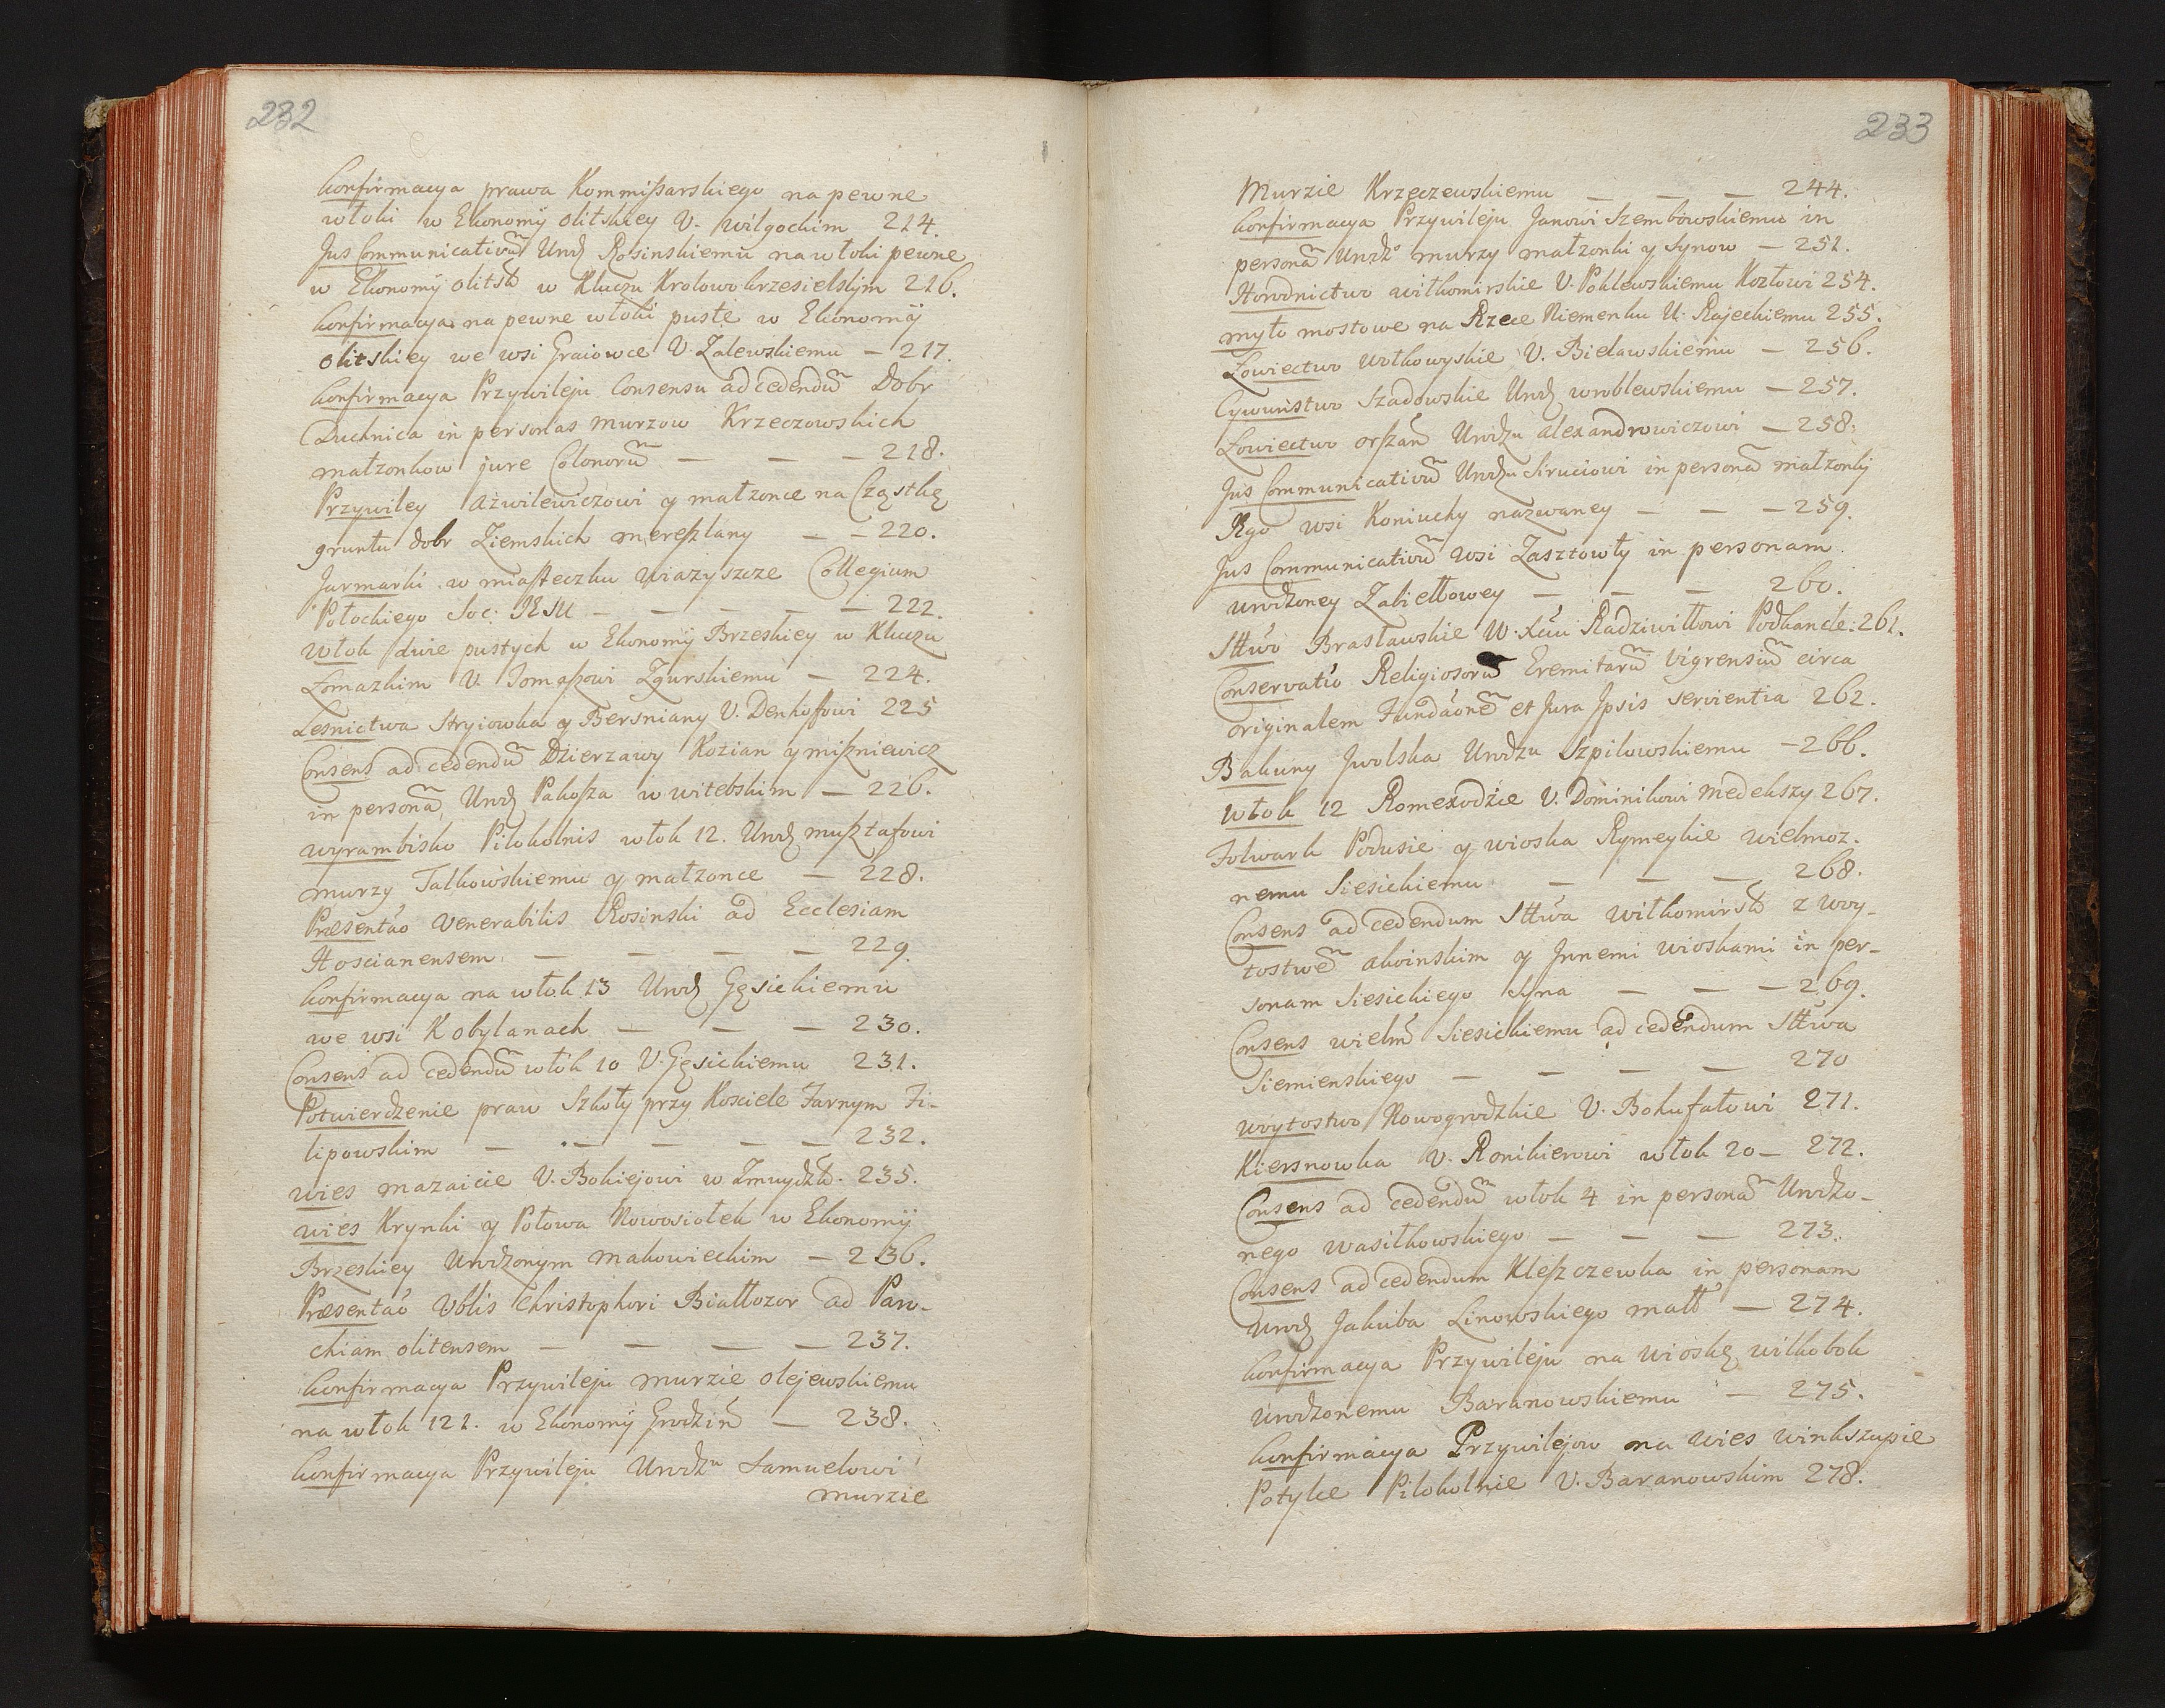 232
Konfirmacya prawa Kommißarskiego na pewne
włoki w Ekonomÿ olitskiey U. Wilgockim 214.
Jus Communicativū Urodz Rosinskiemu na włoki pewne
w Ekonomÿ olitsk w Kluczu Krolowokrzesielskim 216.
Konfirmacya na pewne włoki puste w Ekonomÿ
olitskiey we wsi Graiowce U. Zalewskiemu – 217.
Konfirmacya Przywileju Consensu ad cedendū Dobr
Duchnica in personas murzow Krzeczowskich
małzonkow jure Colonorū — — — 218.
Przywiley Azwilewiczowi y małzonce na Cząstkę
gruntu dobr Ziemskich mereszlany — – 220.
Jarmarki w miasteczku Uiazyszcze Collegium
Połockiego Soc: JESU — — — — — 222.
Włok dwie pustych w Ekonomÿ Brzeskiey w Kluczu
Łomazkim U. Tomaszowi Zgurskiemu – 224.
Lesnictwa Stryiowka y Bersniany U. Denhoffowi 225
Consens ad cedendū Dzierzawy Kozian y miszniewicz
in personā Urodz Pakosza w witebskim – 226.
wyrambisko Pilokolnis włok 12. Urodz musztafowi
murzy Talkowskiemu y małzonce – 228.
Præsentao Venerabilis Rosinski ad Ecclesiam
Hoscianensem — — — — 229.
Konfirmacya na włok 13 Urodz Gęsickiemu
we wsi Kobylanach — — — 230.
Consens ad cedendū włok 10 U. Gęsickiemu 231.
Potwierdzenie praw Szkoły przy Kosciele Farnym Fi-
lipowskim — — — — — 232.
wies mazaicie U. Bokiejowi w Zmuydzk. 235.
wies Krynki y Połowa Nowosiołek w Ekonomÿ
Brzeskiey Urodzonym makowieckim – 236.
Præsentao Vblis Christophori Białłozor ad Paro-
chiam olitensem — — — — 237.
Konfirmacya Przywileju murzie olejewskiemu
na włok 122. w Ekonomÿ Grodziń — 238.
Konfirmacya Przywileju Urodzu Samuelowi
murzie
233
Murzie Krzeczewskiemu — — — 244.
Konfirmacya Przywileju Janowi Szembowskiemu in
personā Urodzo murzy małzonki y Synow – 251.
Horodnictwo wiłkomirskie U. Poklewskiemu Kozłowi 254.
myto mostowe na Rzece Niemenku U. Rajeckiemu 255.
Łowiectwo wołkowyskie U. Bielawskiemu – 256.
Cywunstwo Szadowskie Urodz wroblewskiemu – 257.
Łowiectwo orszań Urodzu alexandrowiczowi – 258.
Jus Communicativū Urodzu Siruciowi in personā małzonki
Kgo wsi Koniuchy nazwaney — — – 259.
Jus Communicativū wsi Zasztowty in personam
urodzoney Zabiełłowey — — — 260.
Sttwo Brasławskie W. Xciu Radziwiłłowi Podkancle: 261.
Conservatio Religiosorū Eremitarū Vigrensiū circa
originalem Fundaonē et Jura Ipsis servientia 262.
Bakuny Jwolska Urodzu Szpilowskiemu – 266.
Włok 12 Romexodzie U. Dominikowi medekszy 267.
Folwark Podusie y wioska Rymeykie wielmoz.
nemu Siesickiemu — — — 268.
Consens ad cedendum Sttwa wiłkomirsk z woy-
tostwē akoinskim y Jnnemi wioskami in per-
sonam Siesickiego Syna — — – 269.
Consens wielm Siesickiemu ad cedendum Sttwa
Siemienskiego — — — — 270
woytostwo Nowogrodzkie U. Bohufałowi 271.
Kiersnowka U. Ronikierowi włok 20 – 272.
Consens ad cedendū włok 4 in personā Urodzo-
nego wasilkowskiego — — — 273.
Consens ad cedendum Kleszczewka in personam
Urodz Jakuba Linowskiego małł — 274.
Konfirmacya Przywileju na Wioskę wilkobok
urodzonemu Baranowskiemu – 275.
Konfirmacya Przywilejow na Wies winkszupie
Potylce Pilokolnie U. Baranowskim 278.